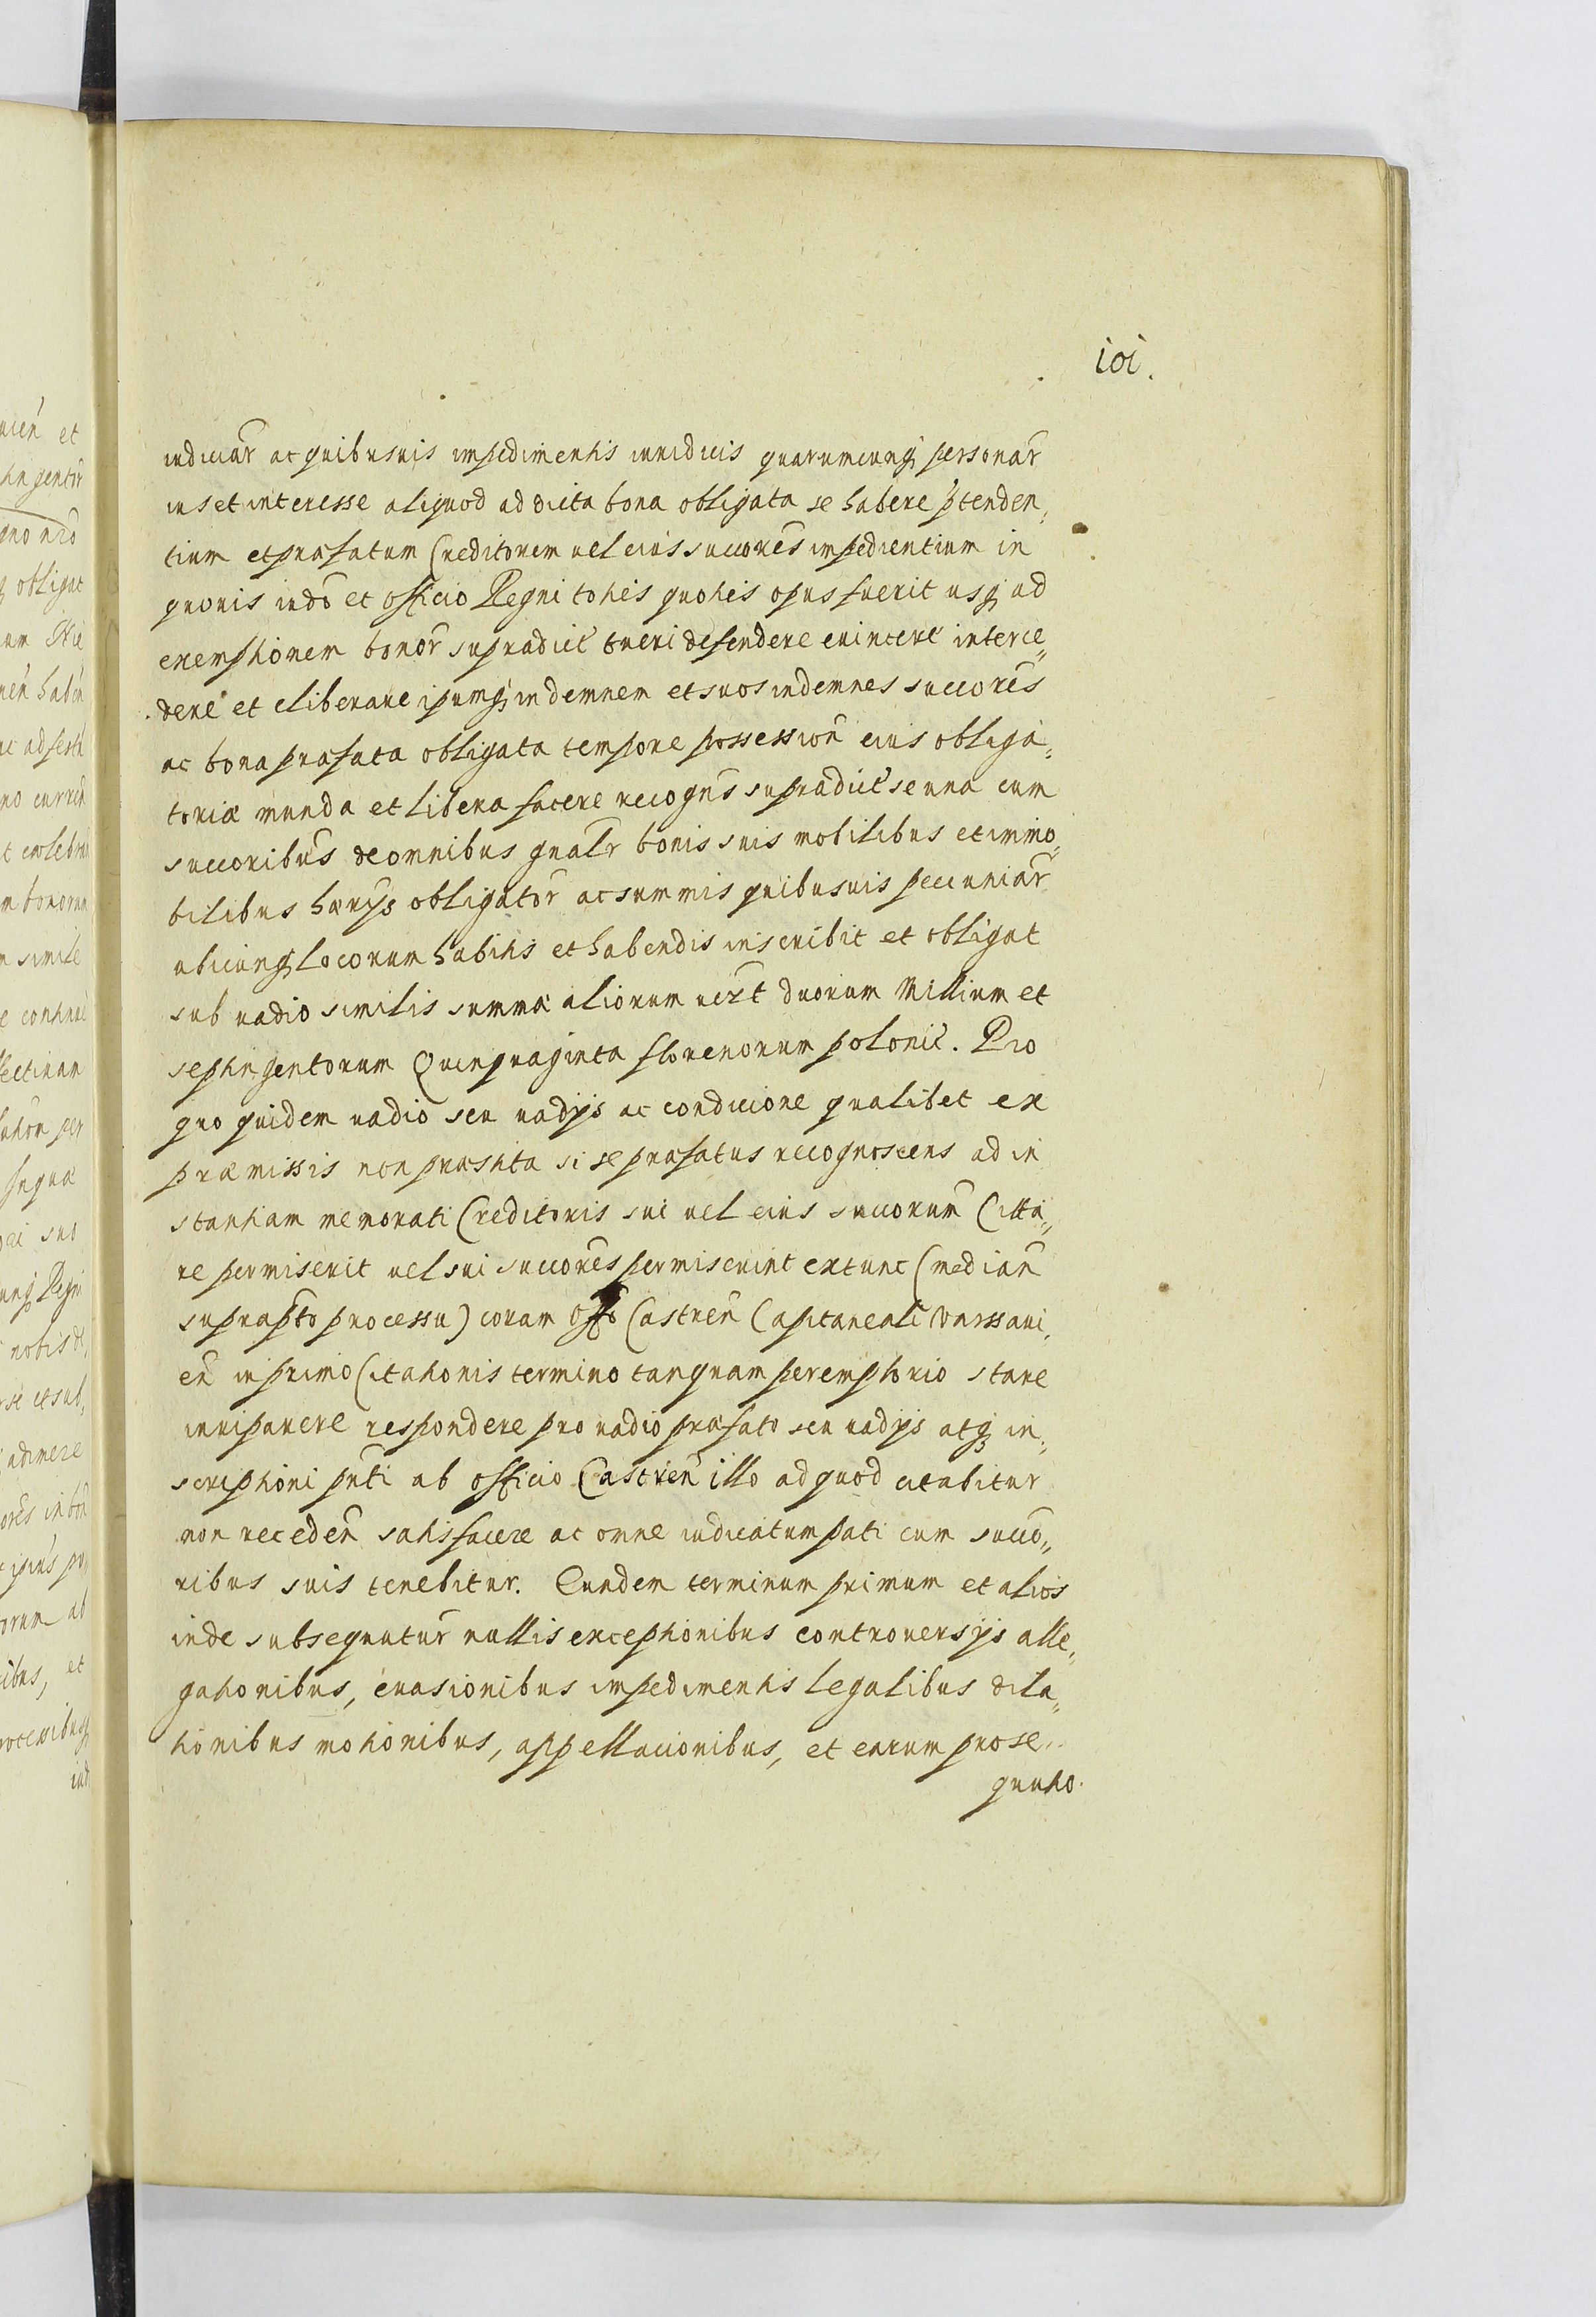 101.
iudiciar ac quibusuis impedimentis iuridicis quarumcunq personar
ius et interesse aliquod ad dicta bona obligata se habere ptenden,
tium et præfatum Creditorem uel eius succores impedientium in
quouis iudo et officio Regni toties quoties opus fuerit usq ad
exemptionem bonor supradict tueri defendere euincere interce„
dere et eliberare ipumq indemnem et suos indemnes succores
ac bona præfata obligata tempore possession eius obliga„
toriæ munda et libera facere recogns supradict se una cum
succoribus de omnibus gnalr bonis suis mobilibus et immo„
bilibus hærijs obligator ac summis quibusuis pecuniar
ubicunq locorum habitis et habendis inscribit et obligat
sub uadio similis summæ aliorum uerzt duorum Millium et
septingentorum Quinquaginta florenorum polonic. Pro
quo quidem uadio seu uadijs ac condicione qualibet ex
præmissis non præstita si se præfatus recognoscens ad in
stantiam memorati Creditoris sui uel eius succorum Citta„
re permiserit uel sui succores permiserint extunc (median
suprapto processu) coram Offo Castren Capitaneali Warssaui,
en in primo Citationis termino tanquam peremptorio stare
iuriparere respondere pro uadio præfato seu uadijs atq in„
scriptioni pnti ab officio Castren illo ad quod citabitur
non receden satisfacere ac omne iudicatum pati cum succo„
ribus suis tenebitur. Eundem terminum primum et alios
inde subsequutur nullis exceptionibus controuersijs alle„
gationibus, euasionibus impedimentis legalibus dila„
tionibus motionibus, appellacionibus, et earum prose„
quutio.